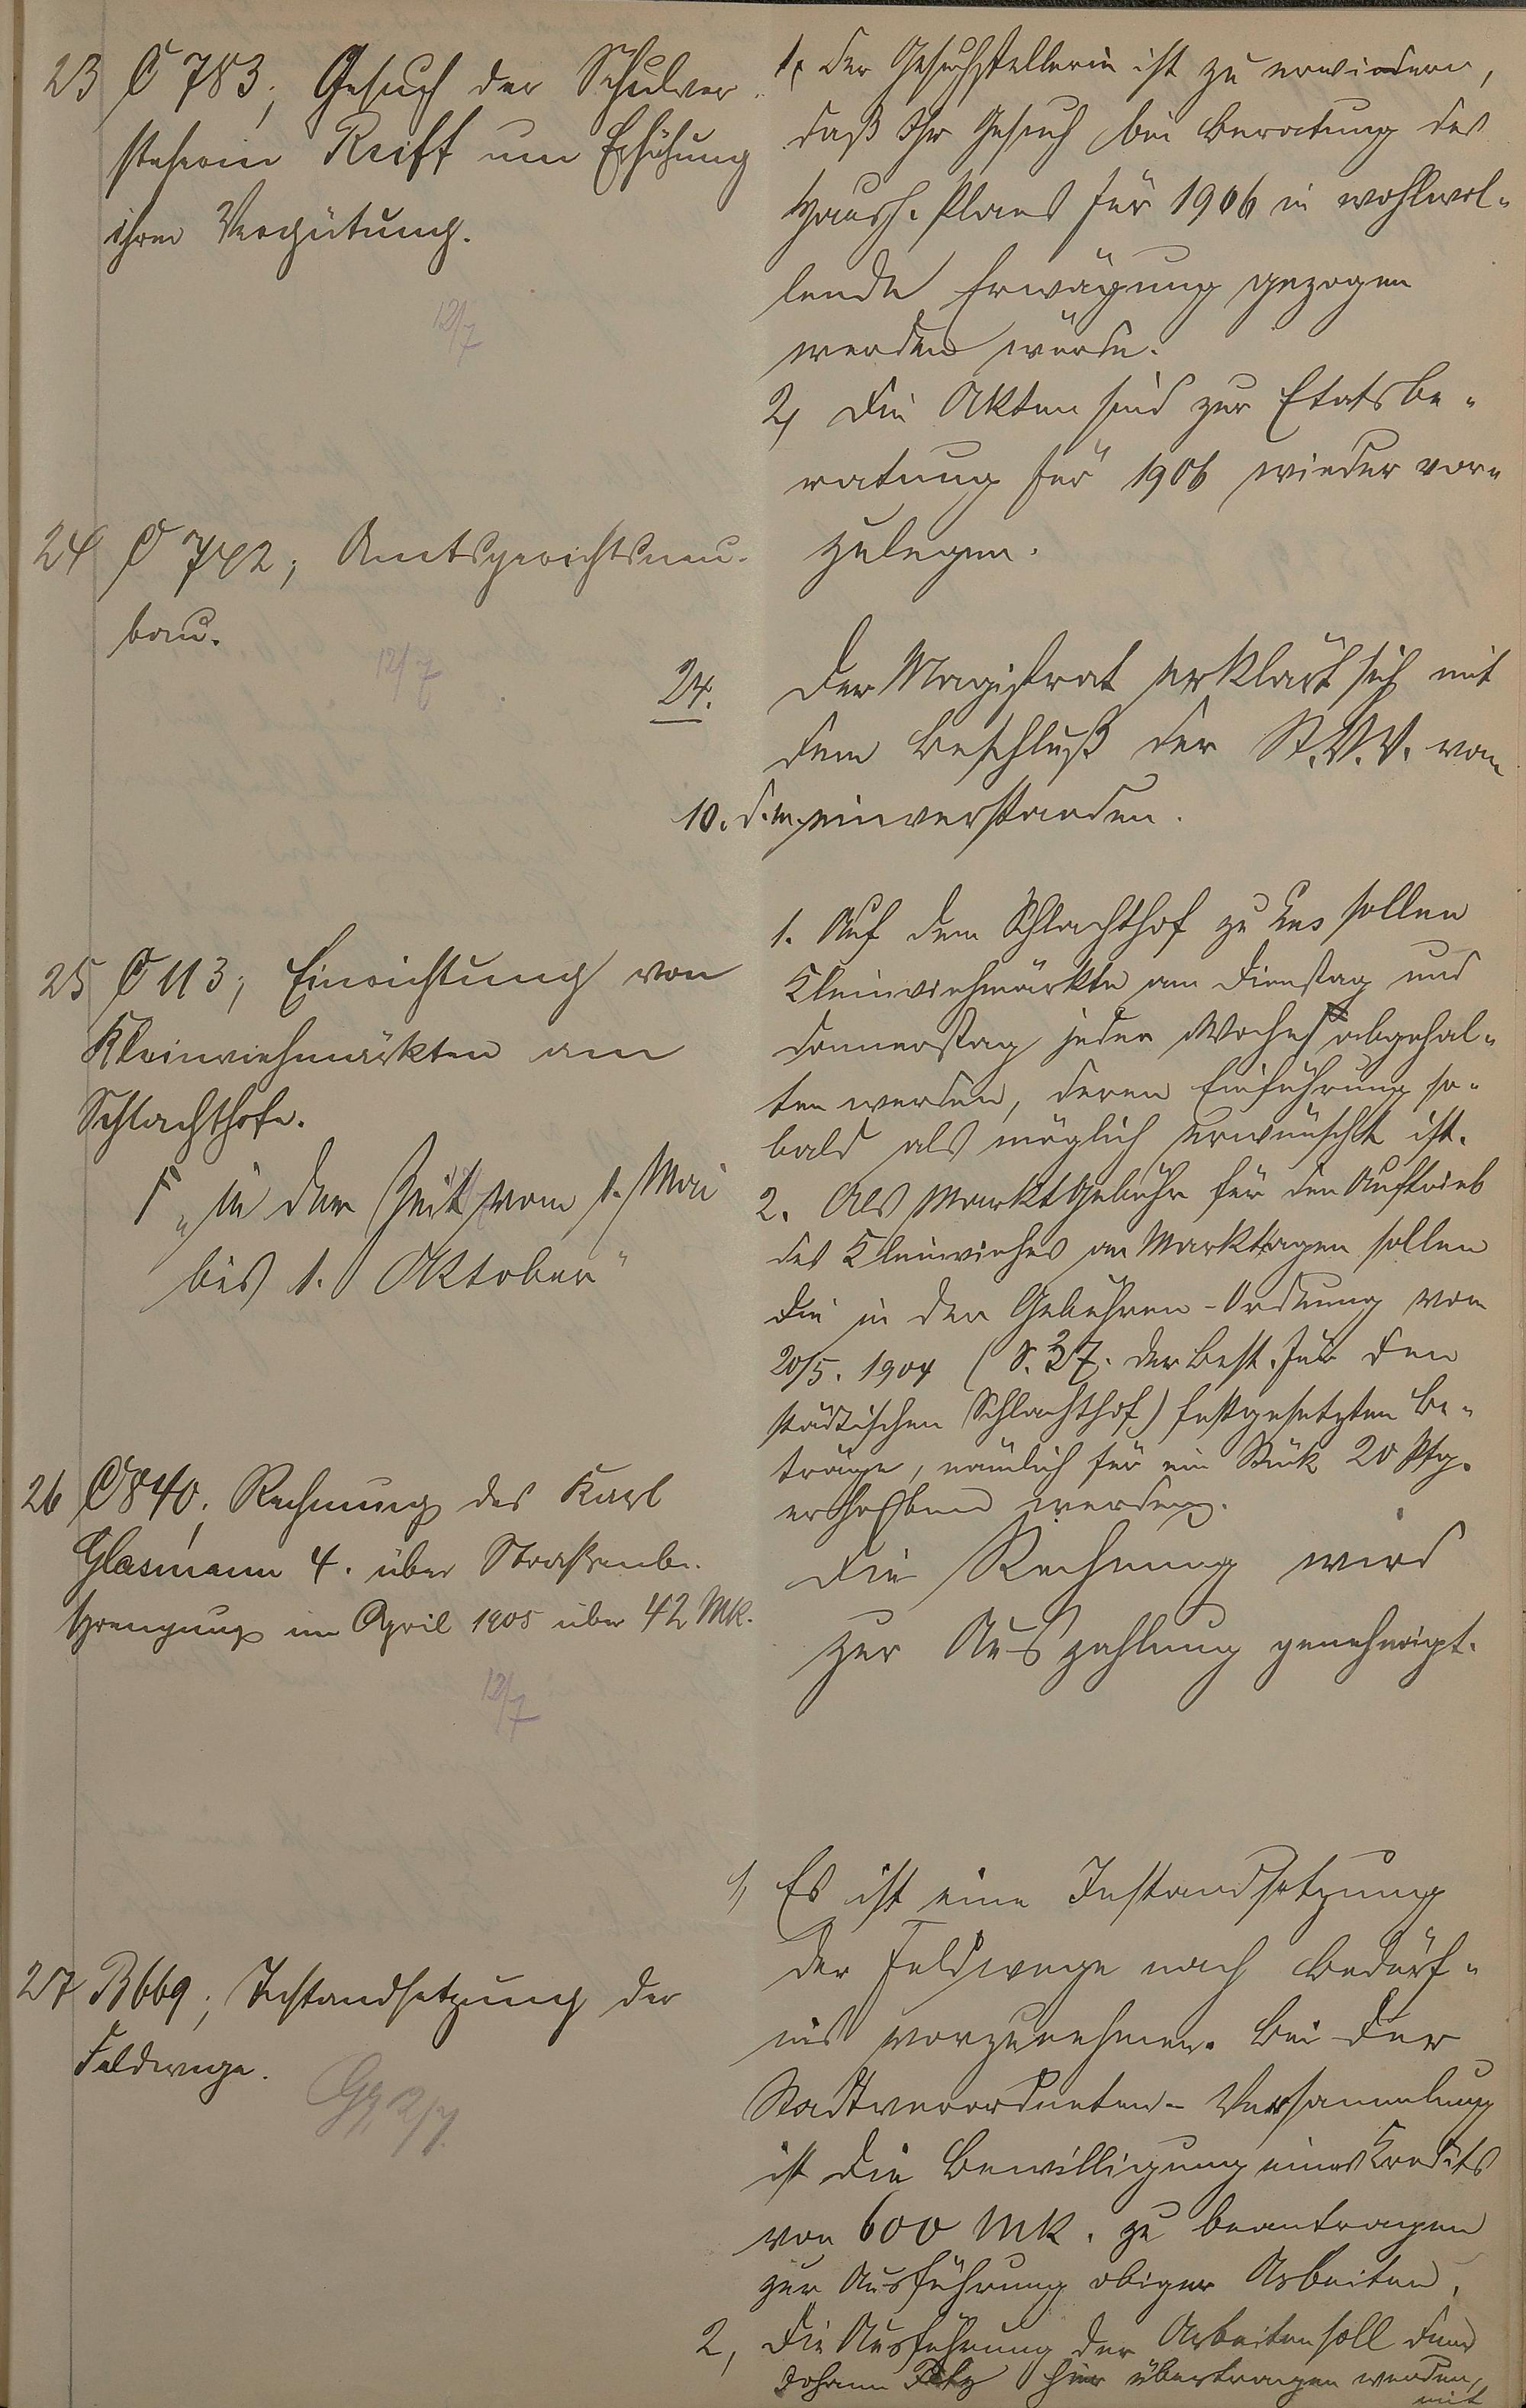 23 C 783; Gesuch der Schulvor-
steherin Reiff um Erhöhung
ihrer Vergütung.
12/7
1, Der Gesuchstellerin ist zu erwiedern,
daß Ihr Gesuch bei Beratung des
Haush. Planes für 1906 in wohlwol-
lende Erwägung gezogen
werden würde.
2, Die Akten sind zur Etatsbe-
ratung für 1906 wieder vor-
zulegen.
24 C 742; Amtsgerichtsneu-
bau.
12/7
24. Der Magistrat erklärt sich mit
dem Beschluß der St.V.V. vom
10. d.M. einverstanden.
25 C 113; Einrichtung von
Kleinviehmärkten am
Schlachthofe.
Γ „in der Zeit vom 1. Mai
bis 1. Oktober“
1. Auf dem Schlachthof zu Ems sollen
Kleinviehmärkte am Dienstag und
Donnerstag jeder Woche Γ abgehal-
ten werden, deren Einführung so-
bald als möglich erwünscht ist.
2. Als Marktgebühr für den Auftrieb
des Kleinviehes an Markttagen sollen
die in der Gebühren-Ordnung vom
20/5. 1904 (S. 37. der Best. für den
städtischen Schlachthof) festgesetzten Be-
träge, nämlich für ein Stück 20 Pfg.
erhoben werden.
26 C 840; Rechnung des Karl
Glasmann 4. über Straßenbe-
sprengung im April 1905 über 42 Mk.
12/7
Die Rechnung wird
zur Auszahlung genehmigt.
27 B 669; Instandsetzung der
Feldwege.
1, Es ist eine Instandsetzung
der Feldwege nach Bedürf-
nis vorzunehmen. Bei der
Stadtverordneten-Versammlung
ist die Bewilligung eines Kredits
von 600 Mk. zu beantragen
zur Ausführung obiger Arbeiten.
2, Die Ausführung der Arbeiten soll dem
Johann hier übertragen werden,
mit